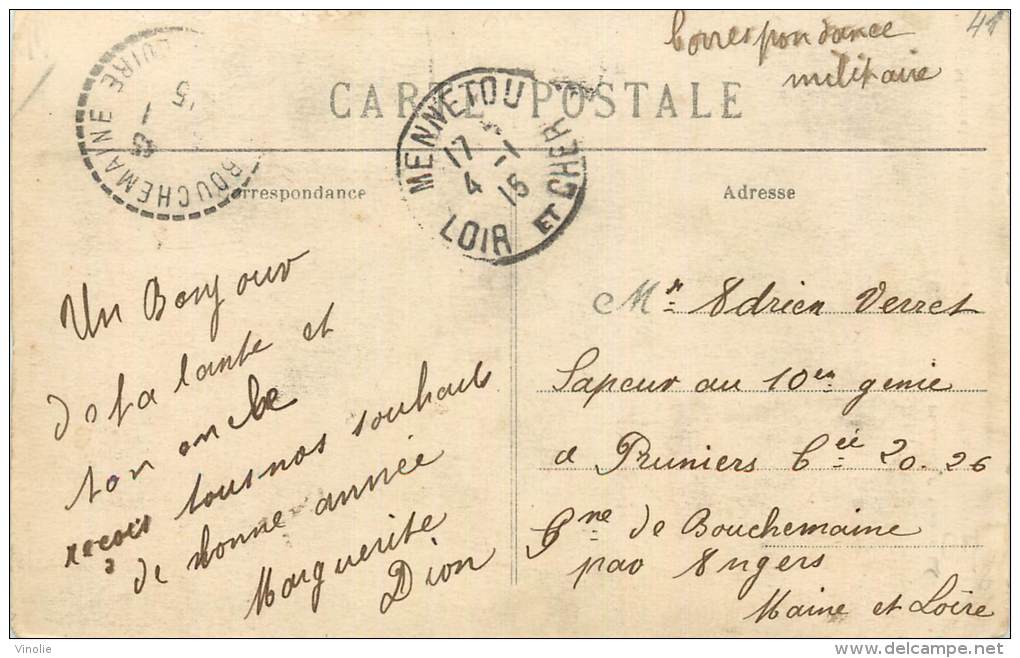 Correspondance
militaire
41
CARTE POSTALE
BOUCHEMAINE
LOIRE
5 1 15
MENNETOU
17 - 1
4 15
LOIR ET CHER
Correspondance
Adresse
Un Bonjour
de ta tante et
ton oncle
reçois tous nos souhaits
de bonne année
Marguerite
Dion
Mr Adrien Verret
Sapeur au 10em genie
a Pruniers Cie 20-26
Cne de Bouchemaine
par Angers
Maine et Loire
Vinolie
delcampe.net